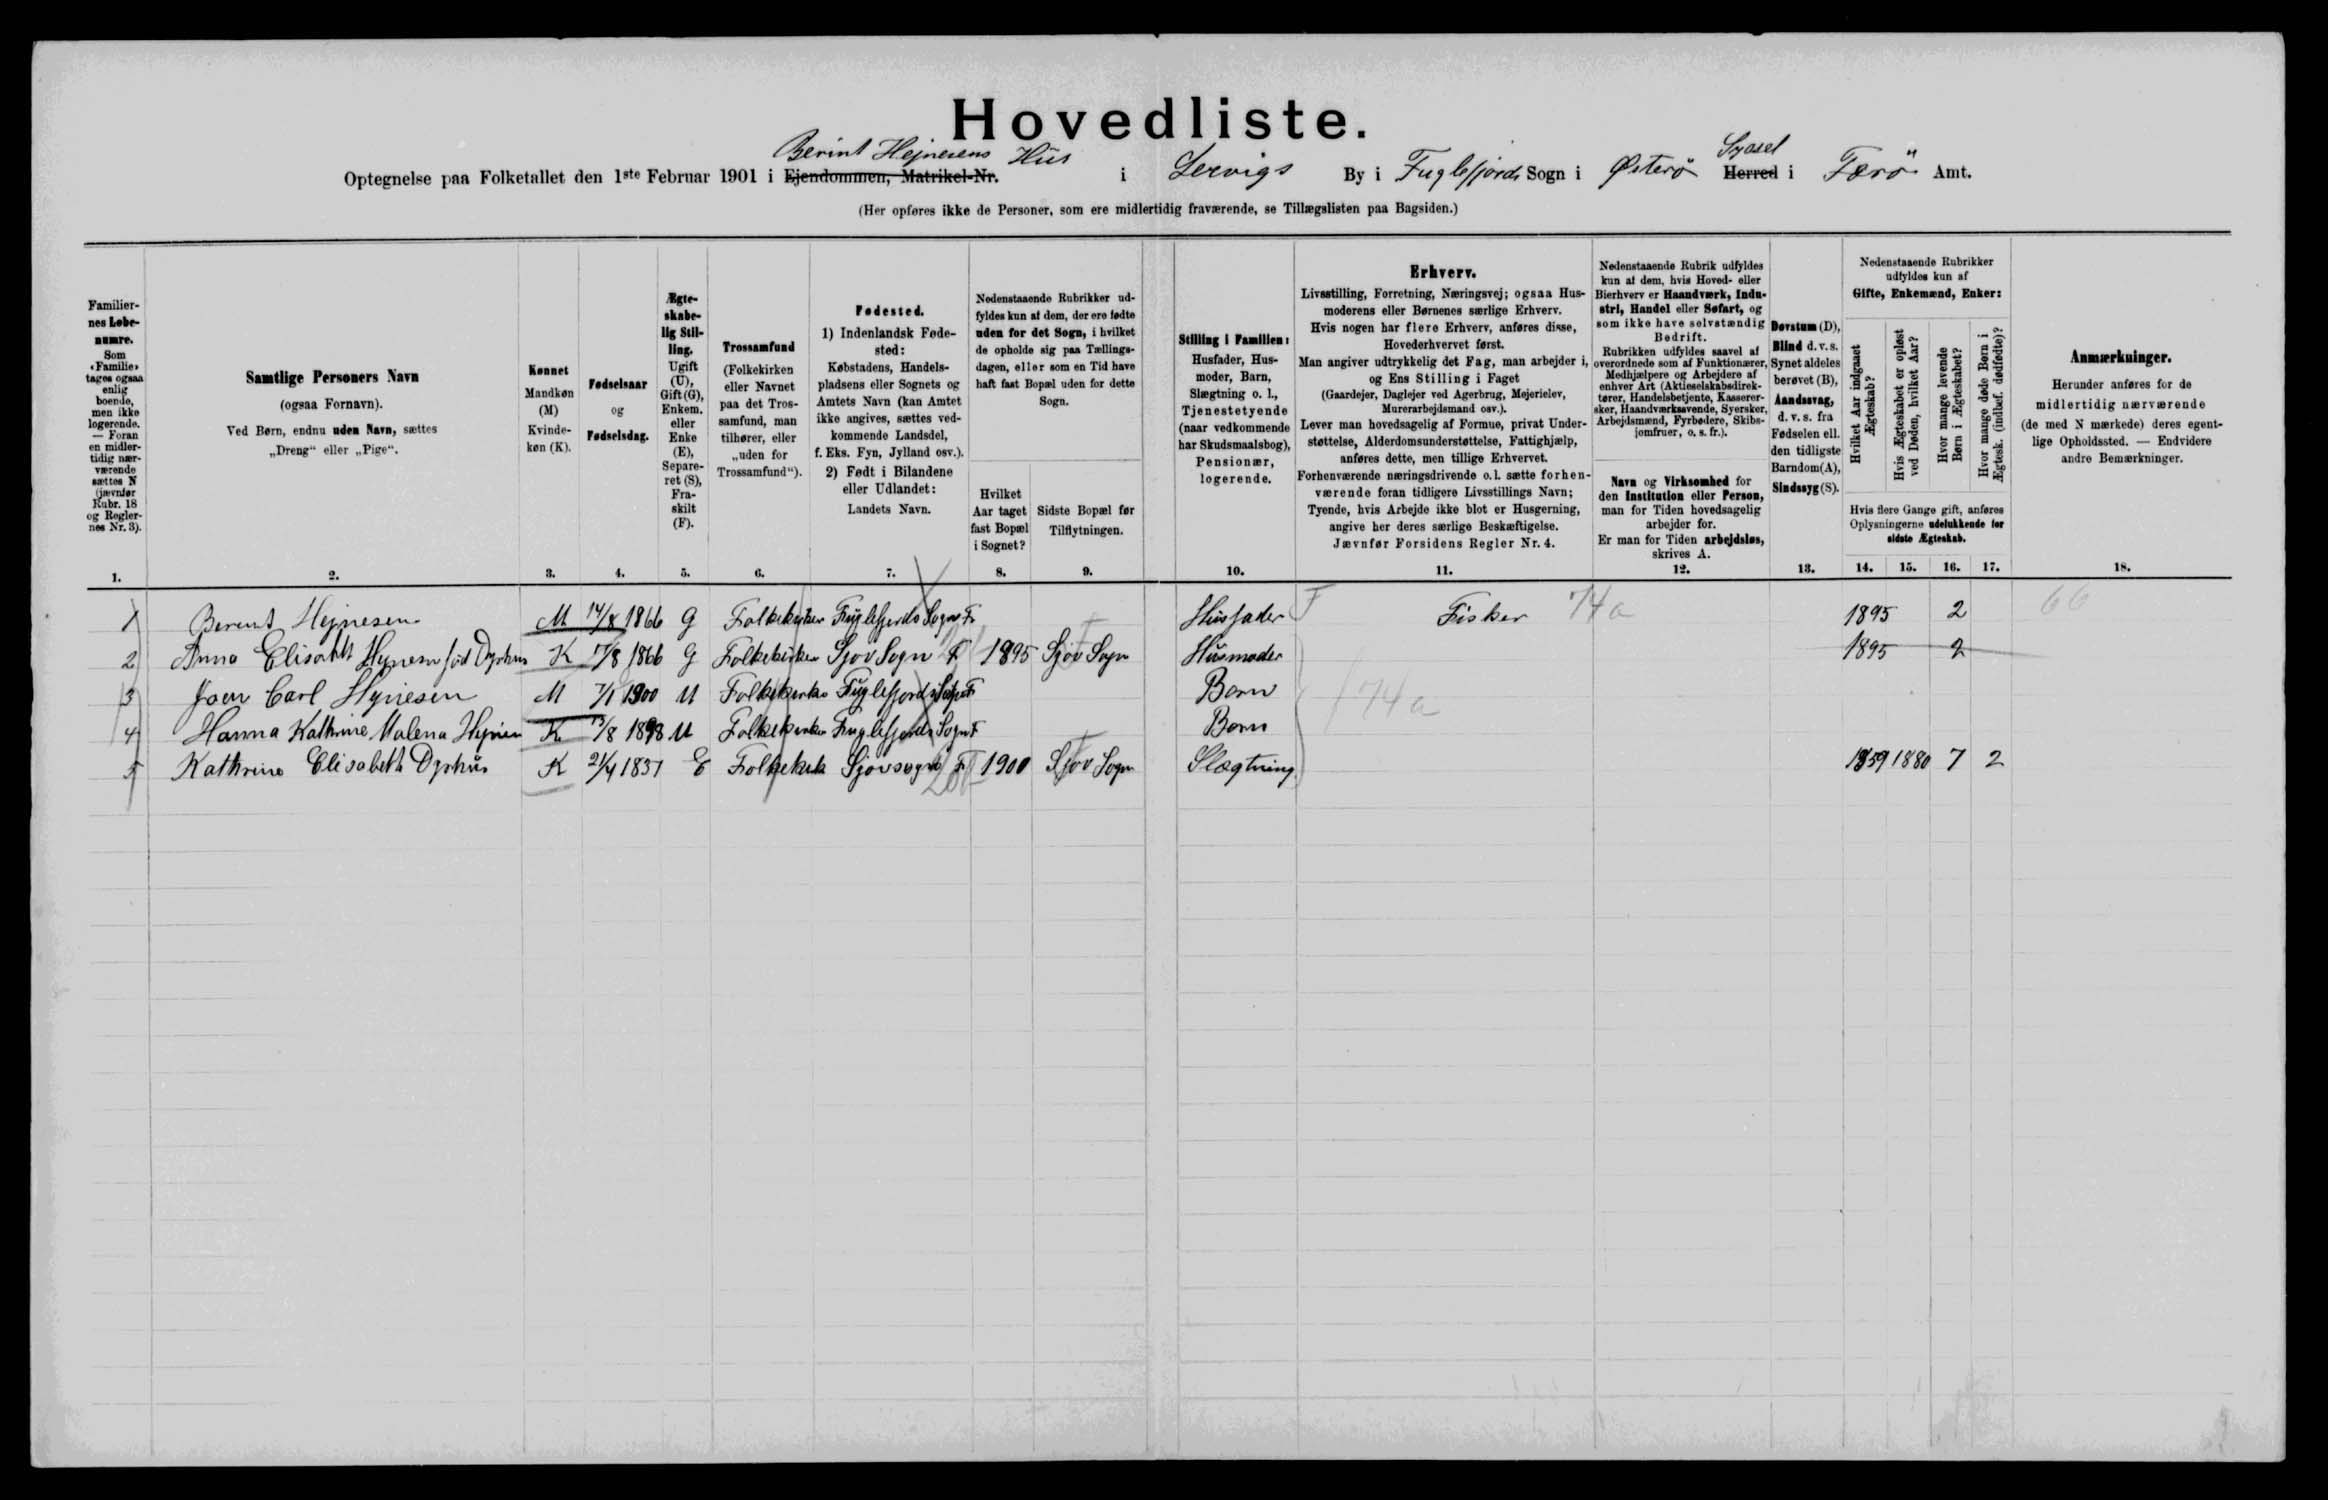 Hovedliste.
Berint Hejnesens Hüs Sysel
Optegnelse paa Folketallet den 1ste Februar 1901 i Ejendommen, Matrikel-Nr. i Lervigs By i Fuglefjords Sogn i Østerø Herred i Færö Amt.
(Her opføres ikke de Personer, som ere midlertidig fraværende, se Tillægslisten paa Bagsiden.)
Familiernes Løbenumre.
Som «Familie» tages ogsaa enlig boende, men ikke logerende. — Foran en midlertidig nærværende sættes N (jævnfør Rubr. 18 og Reglernes Nr. 3).
Samtlige Personers Navn
(ogsaa Fornavn).
Ved Børn, endnu uden Navn, sættes
„Dreng“ eller „Pige“.
Kønnet
Mandkøn (M)
Kvindekøn (K).
Fødselsaar
og
Fødselsdag.
Ægteskabelig Stilling.
Ugift (U), Gift (G), Enkem. eller Enke (E), Separeret (S), Fraskilt (F).
Trossamfund
(Folkekirken eller Navnet paa det Trossamfund, man tilhører, eller „uden for Trossamfund“).
Fødested.
1) Indenlandsk Fødested:
Købstadens, Handelspladsens eller Sognets og Amtets Navn (kan Amtet ikke angives, sættes vedkommende Landsdel, f. Eks. Fyn, Jylland osv.).
2) Født i Bilandene eller Udlandet:
Landets Navn.
Nedenstaaende Rubrikker udfyldes kun af dem, der ere fødte uden for det Sogn, i hvilket de opholde sig paa Tællingsdagen, eller som en Tid have haft fast Bopæl uden for dette Sogn.
Hvilket Aar taget fast Bopæl i Sognet?
Sidste Bopæl før Tilflytningen.
Stilling i Familien:
Husfader, Husmoder, Barn, Slægtning o. l., Tjenestetyende (naar vedkommende har Skudsmaalsbog), Pensionær, logerende.
Erhverv.
Livsstilling, Forretning, Næringsvej; ogsaa Husmoderens eller Børnenes særlige Erhverv.
Hvis nogen har flere Erhverv, anføres disse, Hovederhvervet først.
Man angiver udtrykkelig det Fag, man arbejder i, og Ens Stilling i Faget
(Gaardejer, Daglejer ved Agerbrug, Mejerielev, Murerarbejdsmand osv.).
Lever man hovedsagelig af Formue, privat Understøttelse, Alderdomsunderstøttelse, Fattighjælp, anføres dette, men tillige Erhvervet.
Forhenværende næringsdrivende o. l. sætte forhenværende foran tidligere Livsstillings Navn;
Tyende, hvis Arbejde ikke blot er Husgerning, angive her deres særlige Beskæftigelse.
Jævnfør Forsidens Regler Nr. 4.
Nedenstaaende Rubrik udfyldes kun af dem, hvis Hoved- eller Bierhverv er Haandværk, Industri, Handel eller Søfart, og som ikke have selvstændig Bedrift.
Rubrikken udfyldes saavel af overordnede som af Funktionærer, Medhjælpere og Arbejdere af enhver Art (Aktieselskabsdirektører, Handelsbetjente, Kasserersker, Haandværkssvende, Syersker, Arbejdsmænd, Fyrbødere, Skibsjomfruer, o. s. fr.).
Navn og Virksomhed for den Institution eller Person, man for Tiden hovedsagelig arbejder for.
Er man for Tiden arbejdsløs, skrives A.
Døvstum (D), Blind d. v. s. Synet aldeles berøvet (B), Aandssvag, d. v. s. fra Fødselen ell. den tidligste Barndom (A), Sindssyg (S).
Nedenstaaende Rubrikker udfyldes kun af
Gifte, Enkemænd, Enker:
Hvilket Aar indgaaet Ægteskab?
Hvis Ægteskabet er opløst ved Døden, hvilket Aar?
Hvor mange levende Børn i Ægteskabet?
Hvor mange døde Børn i Ægtesk. (indbef. dødfødte)?
Hvis flere Gange gift, anføres Oplysningerne udelukkende for sidste Ægteskab.
Anmærkninger.
Herunder anføres for de midlertidig nærværende (de med N mærkede) deres egentlige Opholdssted. — Endvidere andre Bemærkninger.
1. 2. 3. 4. 5. 6. 7. 8. 9. 10. 11. 12. 13. 14. 15. 16. 17. 18.
1 Berent Hejnesen M 14/8 1866 G Folkekirken Fuglefjords Sogn F. Husfader F Fisker 74a 1895 2 66
2 Anna Elisabth Hynesen född Dyrhus K 17/8 1866 G Folkekirken Sjov Sogn F 1895 Sjov Sogn Husmoder 1895 2
3 Joen Carl Hynesen M 7/1 1900 U Folkekirke Fuglefjords Sogn F Barn 74a
4 Hanna Kathrine Malena Hejnesen K 13/8 1898 U Folkekirke Fuglefjords Sogn F Barn
5 Kathrine Elisabeth Dyrhüs K 21/4 1837 E Folkekirk Sjovsogn F 1900 Sjov Sogn Slægtning 1859 1880 7 2